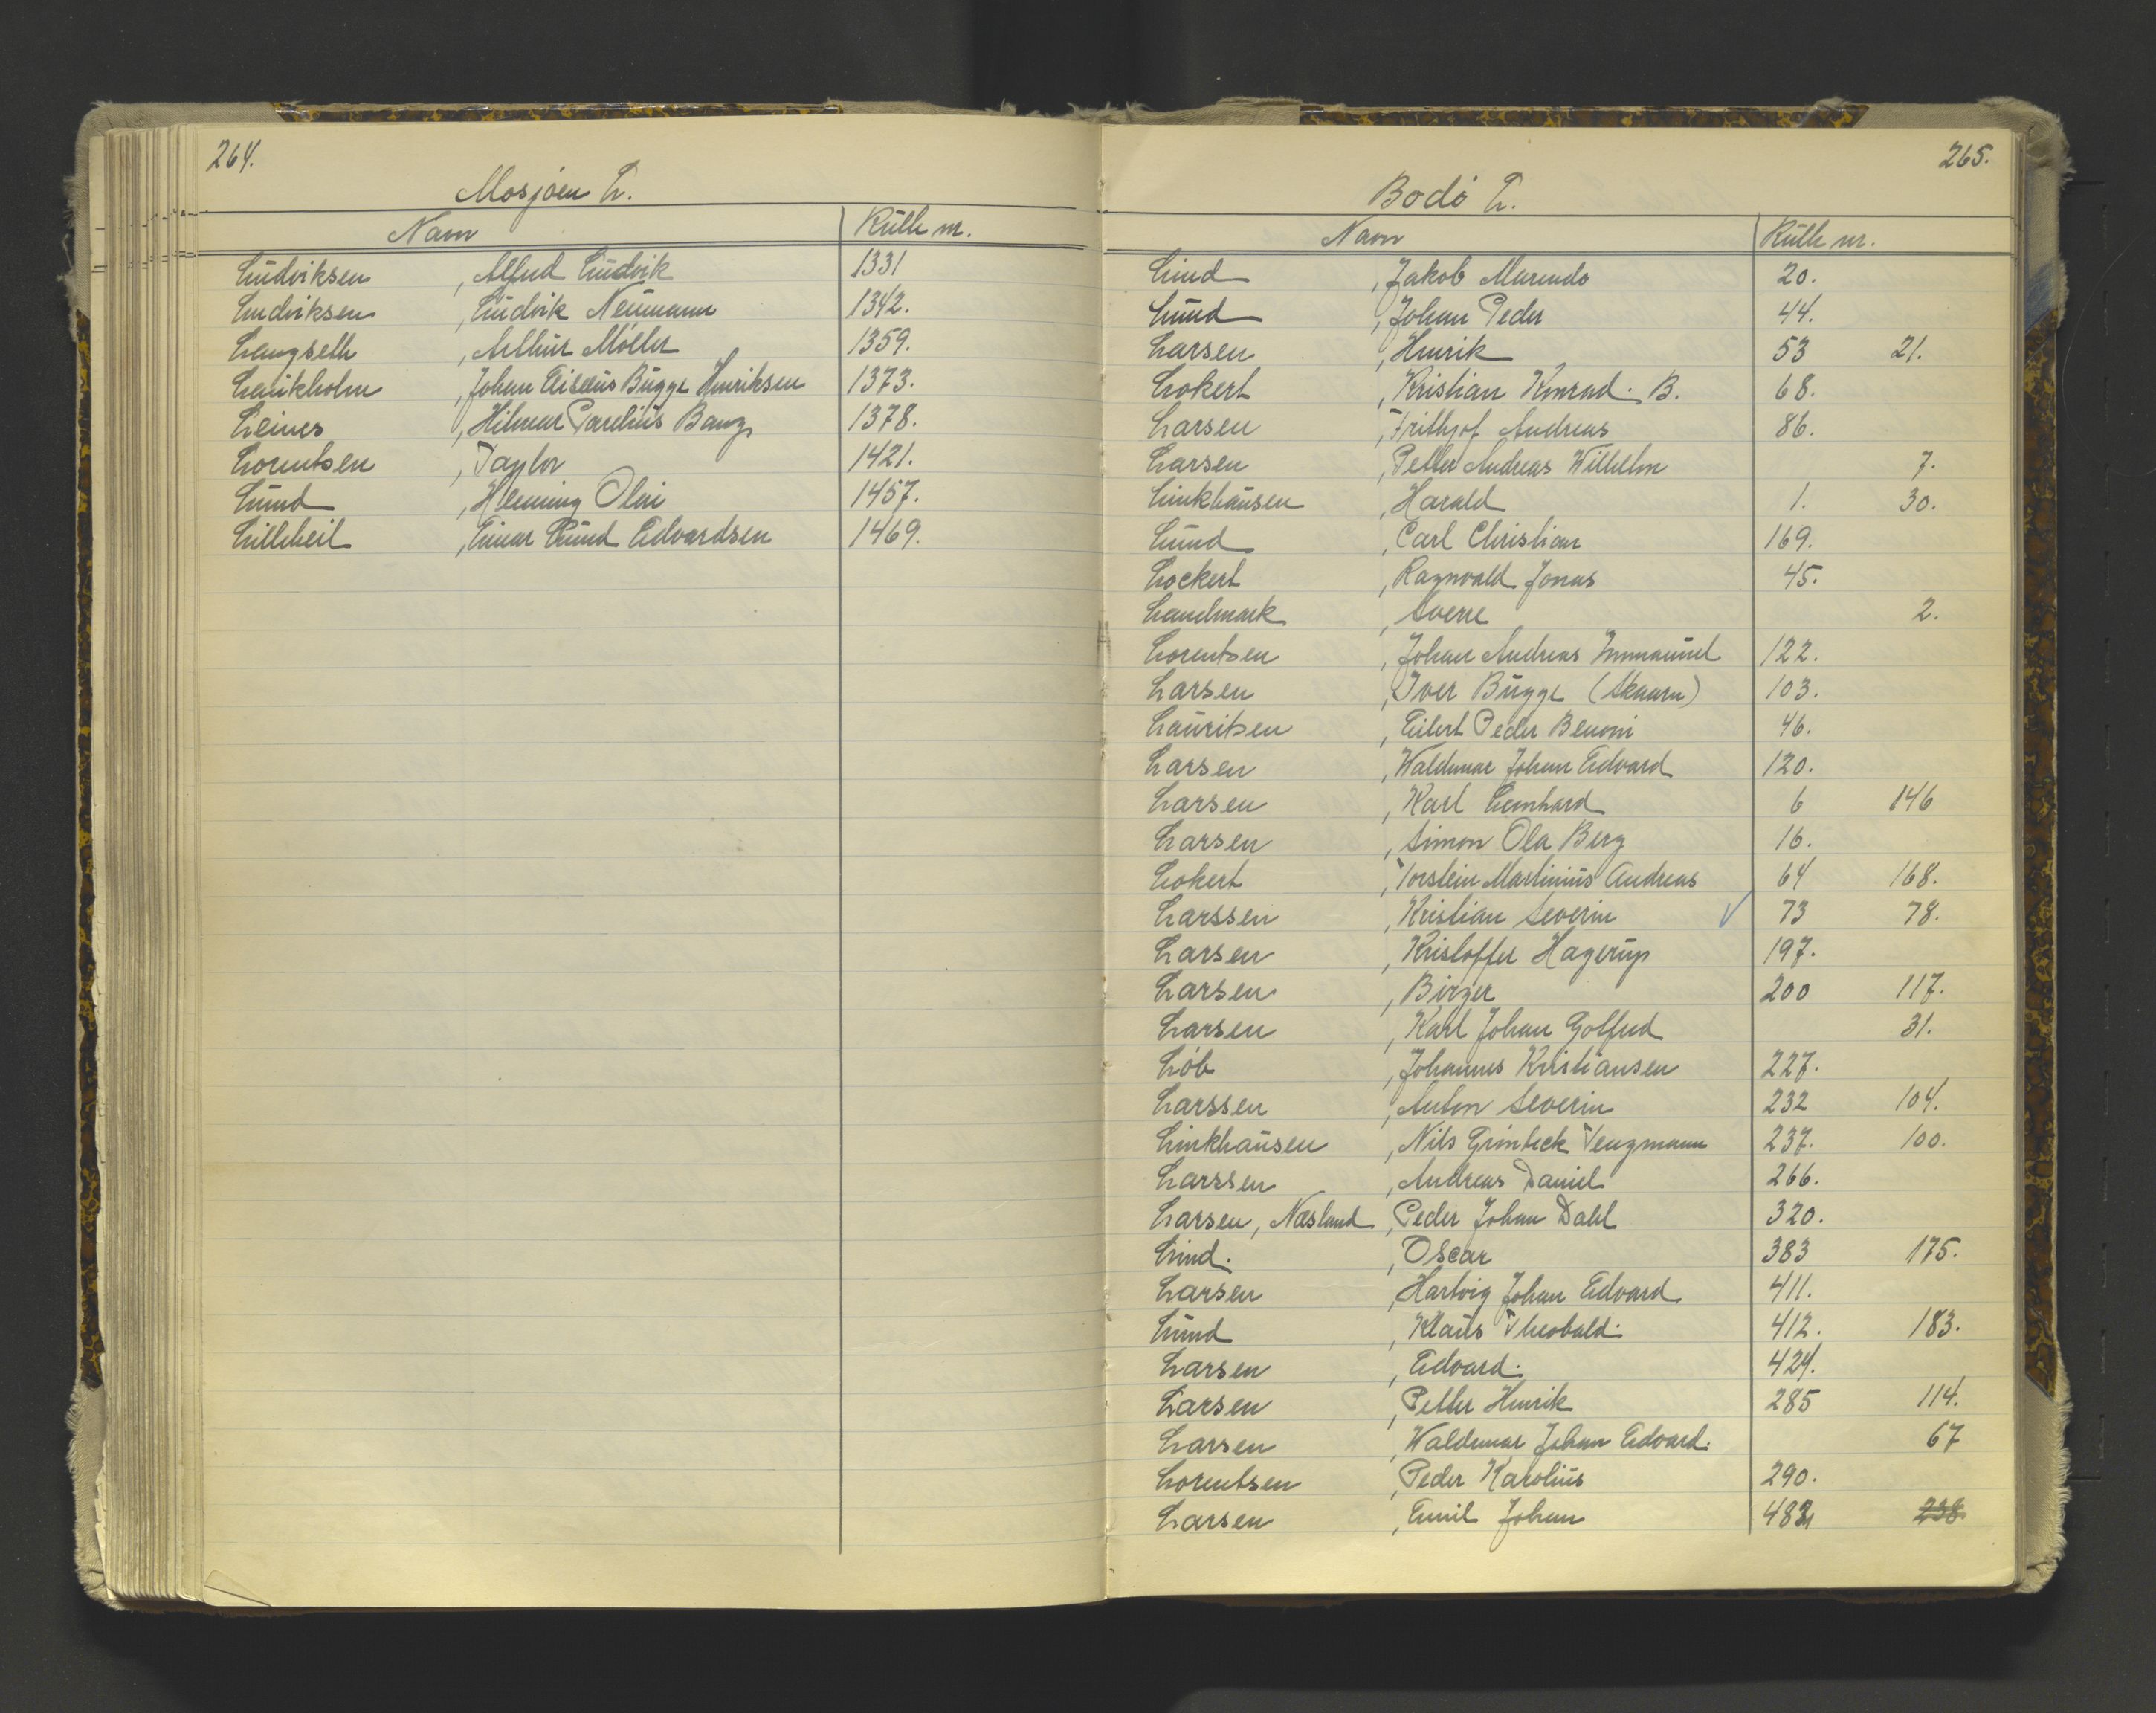 264.
Mosjøen L.
Navn Rulle nr.
Ludviksen, Alfred Ludvik 1331
Ludviksen, Ludvik Neumann 1342.
Langseth, Arthur Möller 1359.
Lauikholm, Johan Eiseus Bugge Henriksen 1373.
Leines, Hilmar Parelius Bang 1378.
Lorentsen, Taylor 1421.
Lund, Henning Olai 1457.
Lilleheil, Einar Lund Edvardsen 1469.
265.
Bodö L.
Navn Rulle nr.
Lind, Jakob Marendo 20.
Lund, Johan Peder 44.
Larsen, Henrik 53 21.
Lokert, Kristian Konrad. B. 68.
Larsen, Frithjof Andreas 86.
Larsen, Petter Andreas Wilhelm 7.
Linkhausen, Harald 1. 30.
Lund, Carl Christian 169.
Lockert, Ragnvald Jonas 45.
Landmark, Sverre 2.
Lorentsen, Johan Andreas Immanuel 122.
Larsen, Iver Bugge (Skaarn) 103.
Lauritsen, Eilert Peder Benoni 46.
Larsen, Waldemar Johan Edvard 120.
Larsen, Karl Lernhard 6 146
Larsen, Simon Ola Berg 16.
Lokert, Torstein Martinius Andreas 64 168.
Larssen, Kristian Severin √ 73 78.
Larsen, Kristoffer Hagerup 197.
Larsen, Birger 200 117.
Larsen, Karl Johan Gotfred 31.
Löb, Johannes Kristiansen 227.
Larssen, Anton Severin 232 104.
Linkhausen, Nils Grönbeck Vengmann 237. 100.
Larssen, Andreas Daniel 266.
Larsen, Næsland, Peder Johan Dahl 320.
Lind., Oscar 383 175.
Larsen, Hartvig Johan Edvard 411.
Lund, Klaus Theobald. 412. 183.
Larsen, Edvard. 424.
Larsen, Petter Henrik 285 114.
Larsen, Waldemar Johan Edvard. 67
Lorentsen, Peder Karolius 290.
Larsen, Emil Johan 238